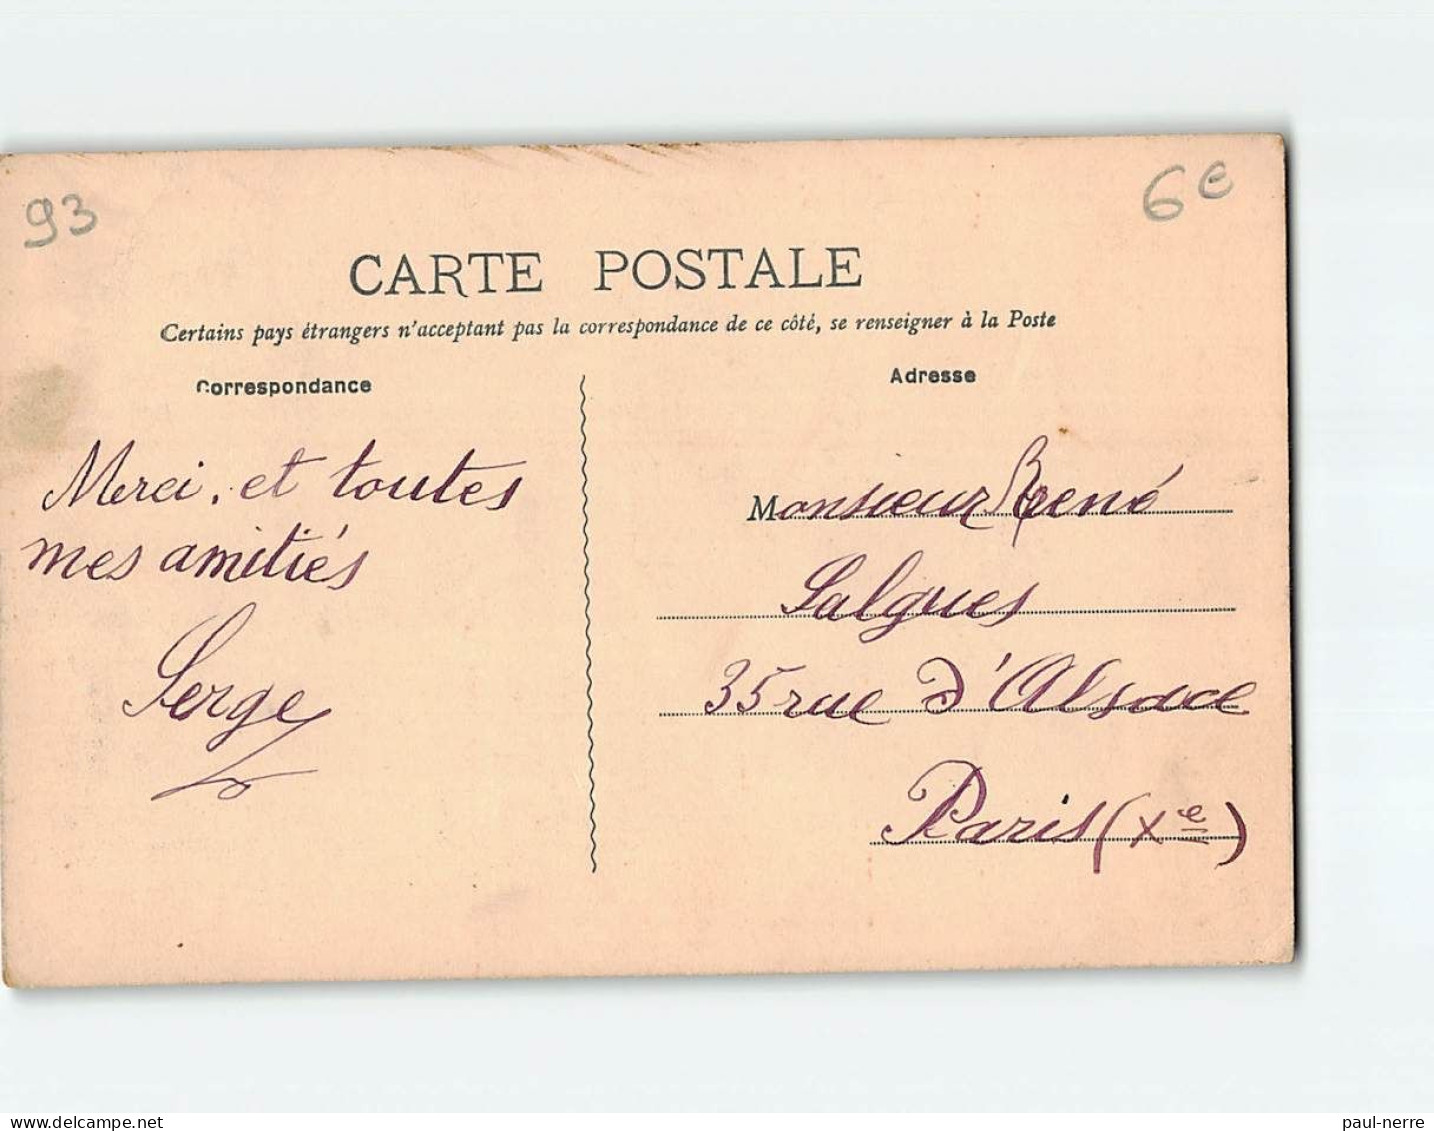 93
6e
CARTE POSTALE
Certains pays étrangers n'acceptant pas la correspondance de ce côté, se renseigner à la Poste
Correspondance
Adresse
Merci, et toutes
mes amitiés
Serge
Monsieur René
Salgues
35 rue d'Alsace
Paris (Xe)
paul-nerre